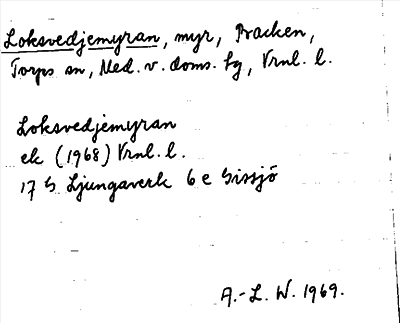 Loksvedjemyran, myr, Bracken,
Torps sn, Med. v. doms. fg, Vrnl. l.
Loksvedjemyran
ek (1968) Vrnl. l.
17 G Ljungaverk 6 e Gissjö
A.-L. W. 1969.